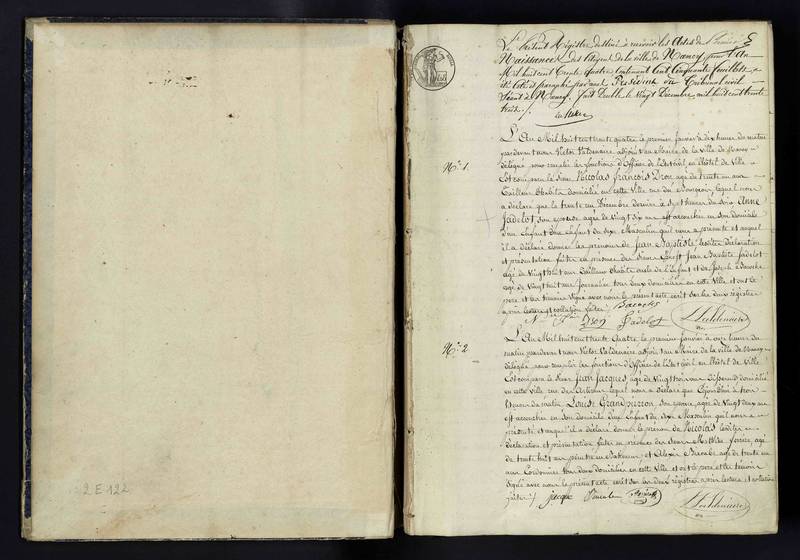 2 E 122
Le présent Registre destiné à recevoir les Actes de
Naissances des Citoyens de la ville de Nancy pour l'An
Mil huit cent Trente quatre contenant Cent Cinquante feuillets
été coté et paraphé par nous Président du Tribunal civil
séant à Nancy. Fait Double le Vingt Décembre mil huit cent trente
trois
N.º 1.
L'An Mil huit cent trente quatre le premier janvier à dix heures du matin
pardevant nous Victor Valdenaire adjoint au Maire de la Ville de Nancy
délégué pour remplir les fonctions d'Officier de l'état civil en l'hôtel de Ville
Est comparu le Sieur Nicolas François Dron âgé de trente un ans
Tailleur d'habits domicilié en cette Ville rue du lequel nous
a déclaré que le trente un Décembre dernier à sept heures du soir Anne
Jadelot son épouse âgée de Vingt six ans est accouchée en son domicile
d'un Enfant du sexe Masculin qu'il nous a présenté et auquel
il a déclaré donner les prénoms de Jean Baptiste lesdites déclaration
et présentation faites en présence des Sieurs Jean Baptiste Jadelot
âgé de Vingt huit ans Tailleur d'habits oncle de l'Enfant et de Joseph
âgé de Vingt huit ans tous deux domiciliés en cette Ville et ont le
père et les témoins signé avec nous le présent acte écrit sur les deux registres
après lecture et collation faites
Dron Jadelot Valdenaire
N.º 2
L'An Mil huit cent trente Quatre le premier janvier à onze heures du
matin pardevant nous Victor Valdenaire adjoint au Maire de la ville de Nancy
délégué pour remplir les fonctions d'Officier de l'Etat civil en l'hôtel de Ville
Est comparu le Sieur Jean Jacques, âgé de Vingt trois ans domicilié
en cette Ville rue des lequel nous a déclaré que
heures du matin Louise Grandpierron son épouse âgée de Vingt deux ans
est accouchée en son domicile d'un Enfant du sexe Masculin qu'il nous a
présenté et auquel il a déclaré donner le prénom de Nicolas lesdites
déclaration et présentation faites en présence des Sieurs Mathias âgé
de trente huit ans peintre en Batiment et Alexis âgé de trente un
ans Cordonnier tous deux Domiciliés en cette Ville et ont le père et les témoins
signé avec nous le présent acte écrit sur les deux registres après lecture et collation
faites
Jacque Valdenaire